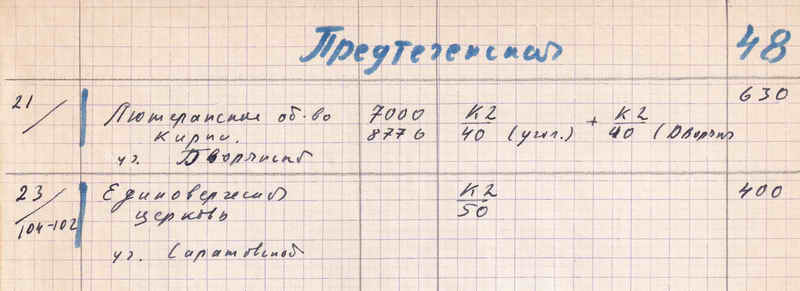 Предтеченская 48
630
21/ Лютеранское об-во 7000 К2 + К2
Кирпи. 8776 40 (угл.) 40 (Дворян
уг. Дворянской
23/ Единоверческая К2 400
104-102 церковь 50
уг. Саратовской